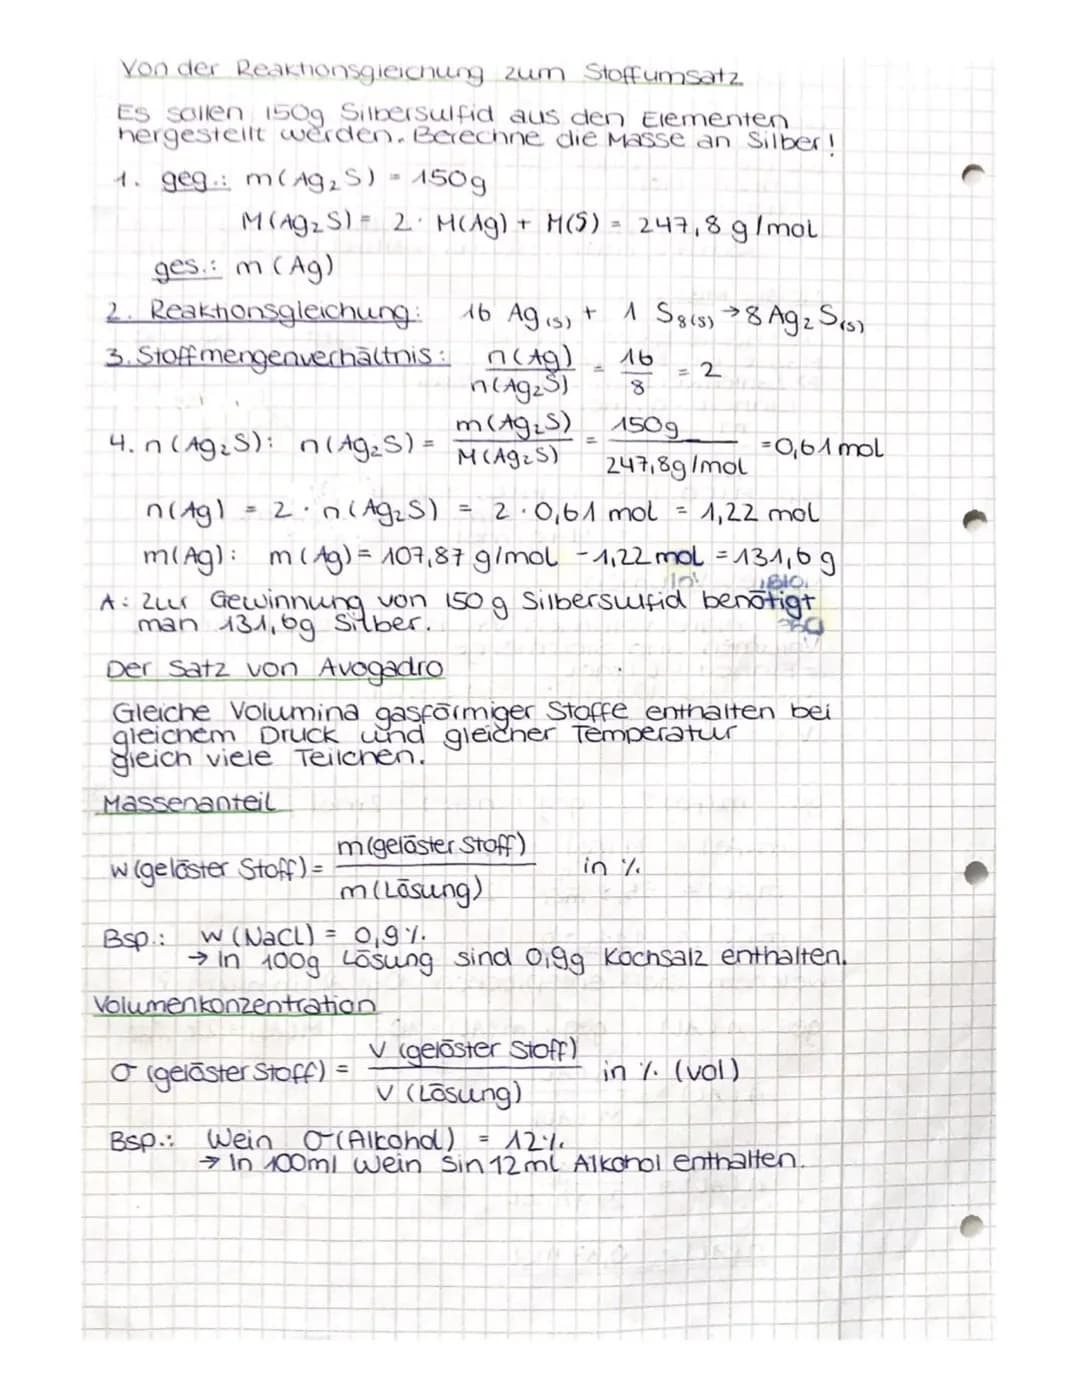 Von der Reaktionsgleichung zum Stoffumsatz
Es sollen 150g Silbersulfid aus den Elementen
hergestellt werden. Berechne die Masse an Silber!
1. geg.: m(Ag₂S) = 150g
M(Ag₂S) = 2 · M(Ag) + M(S) = 247,8 g/mol
ges.: m (Ag)
2. Reaktionsgleichung: 16 Ag(s) + 1 S₈(s) → 8 Ag₂S(s)
3. Stoffmengenverhältnis: n(Ag) / n(Ag₂S) = 16 / 8 = 2
4. n(Ag₂S): n(Ag₂S) = m(Ag₂S) / M(Ag₂S) = 150g / 247,8g/mol = 0,61 mol
n(Ag) = 2 · n(Ag₂S) = 2 · 0,61 mol = 1,22 mol
m(Ag): m(Ag) = 107,87 g/mol - 1,22 mol = 131,6 g
A: Zur Gewinnung von 150 g Silbersulfid benötigt
man 131,6g Silber.
Der Satz von Avogadro
Gleiche Volumina gasförmiger Stoffe enthalten bei
gleichem Druck und gleicher Temperatur
gleich viele Teilchen.
Massenanteil
w (gelöster Stoff) = m (gelöster Stoff) / m (Lösung) in %
Bsp.: w (NaCl) = 0,9%.
→ In 100g Lösung sind 0,9g Kochsalz enthalten.
Volumenkonzentration
σ (gelöster Stoff) = V (gelöster Stoff) / V (Lösung) in % (vol)
Bsp.: Wein σ(Alkohol) = 12%.
→ In 100ml Wein sin 12ml Alkohol enthalten.